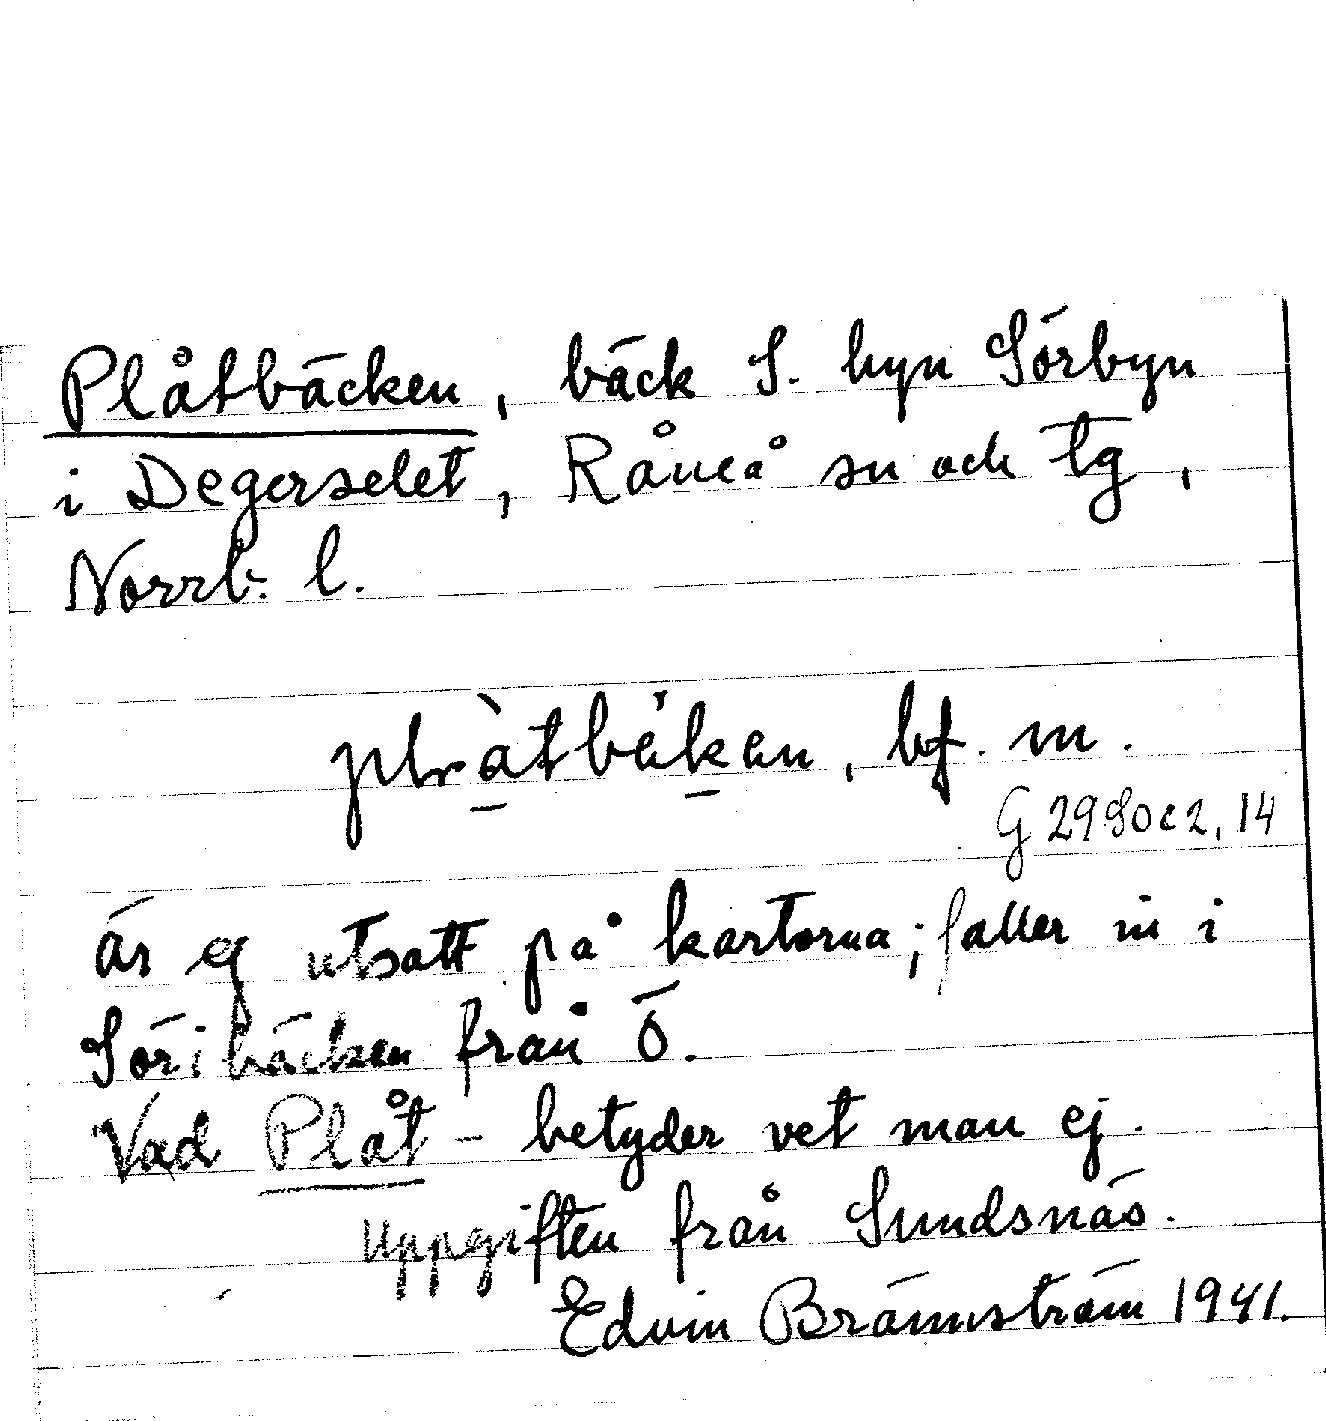 Plåtbäcken, bäck S. byn Sörbyn
i Degerselet, Råneå sn och tg,
Norrb. l.
bf. m.
G 2980c2, 14
är ej utsatt på kartorna; faller in i
Söribäcken från Ö.
Vad Plåt - betyder vet man ej.
Uppgiften från Sundsnäs.
Edvin Brännström 1941.